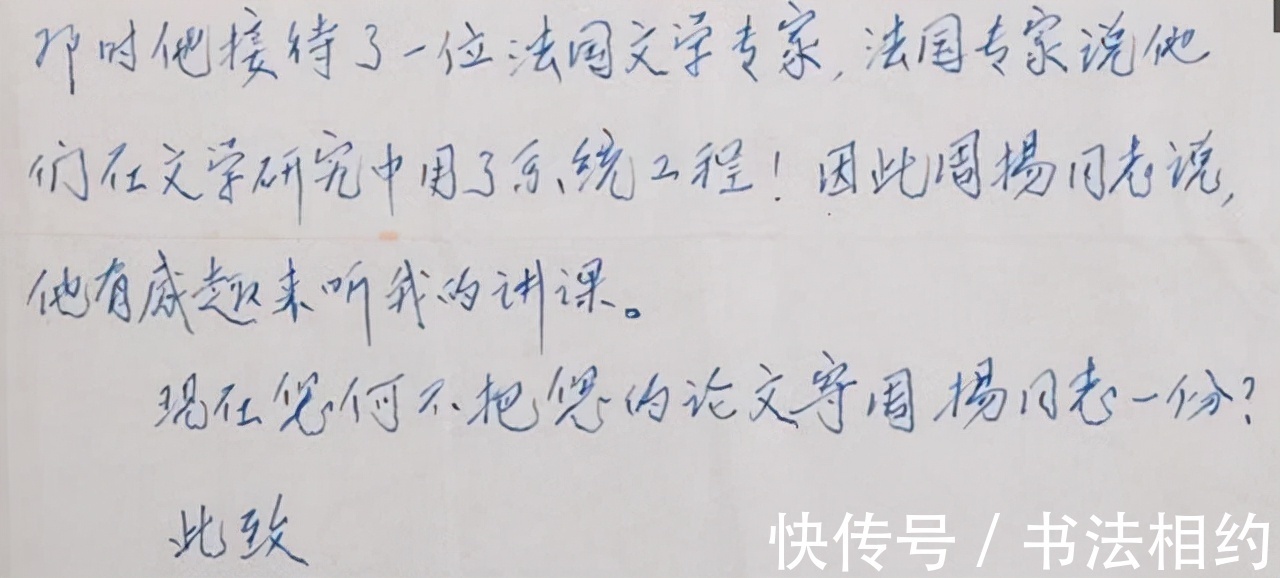 那时他接待了一位法国文学专家,法国专家说他
们在文学研究中用了系统工程!因此周揚同志说,
他有感趣来听我的讲课。
现在您何不把您的论文寄周揚同志一份?
此致
快传号/书法相约